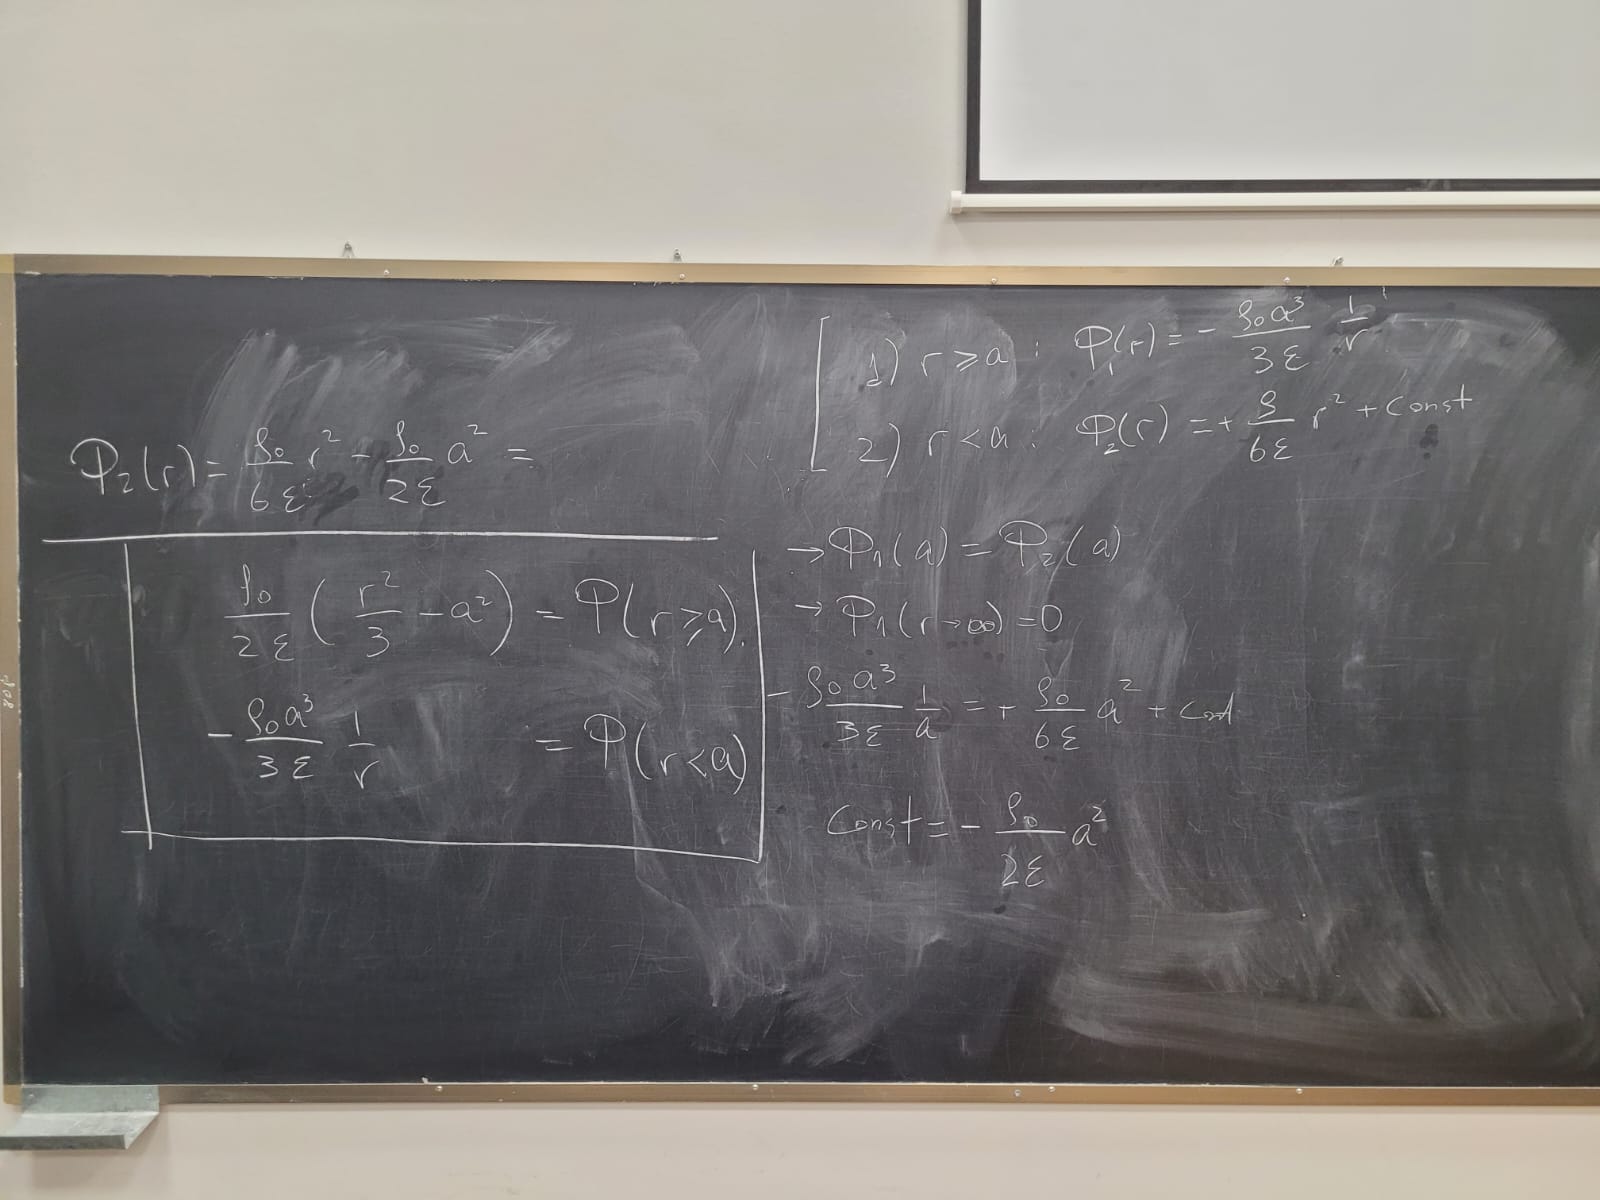 Φ₂(r) = ρ₀/6ε r² - ρ₀/2ε a² =
ρ₀/2ε ( r²/3 - a² ) = φ(r ⩾ a).
- ρ₀a³/3ε 1/r = φ(r < a)
1) r ⩾ a : φ₁(r) = - ρ₀a³/3ε 1/r
2) r < a : φ₂(r) = + ρ/6ε r² + Const
→ φ₁(a) = φ₂(a)
→ φ₁(r→∞) = 0
- ρ₀a³/3ε 1/a = + ρ₀/6ε a² + Const
Const = - ρ₀/2ε a²